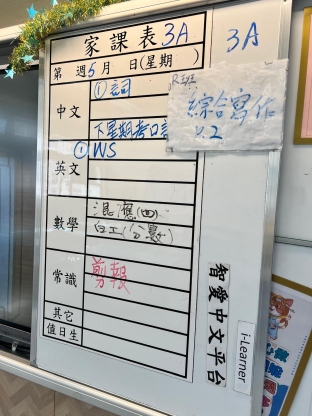 家課表 3A
3A
第 週 5 月 日(星期 )
R班
綜合寫作
v.2
中文
① 詞
下星期考口試
英文
① WS
數學
混應(四)
白工(分數)
常識
剪報
其它
值日生
智愛中文平台
i-Learner